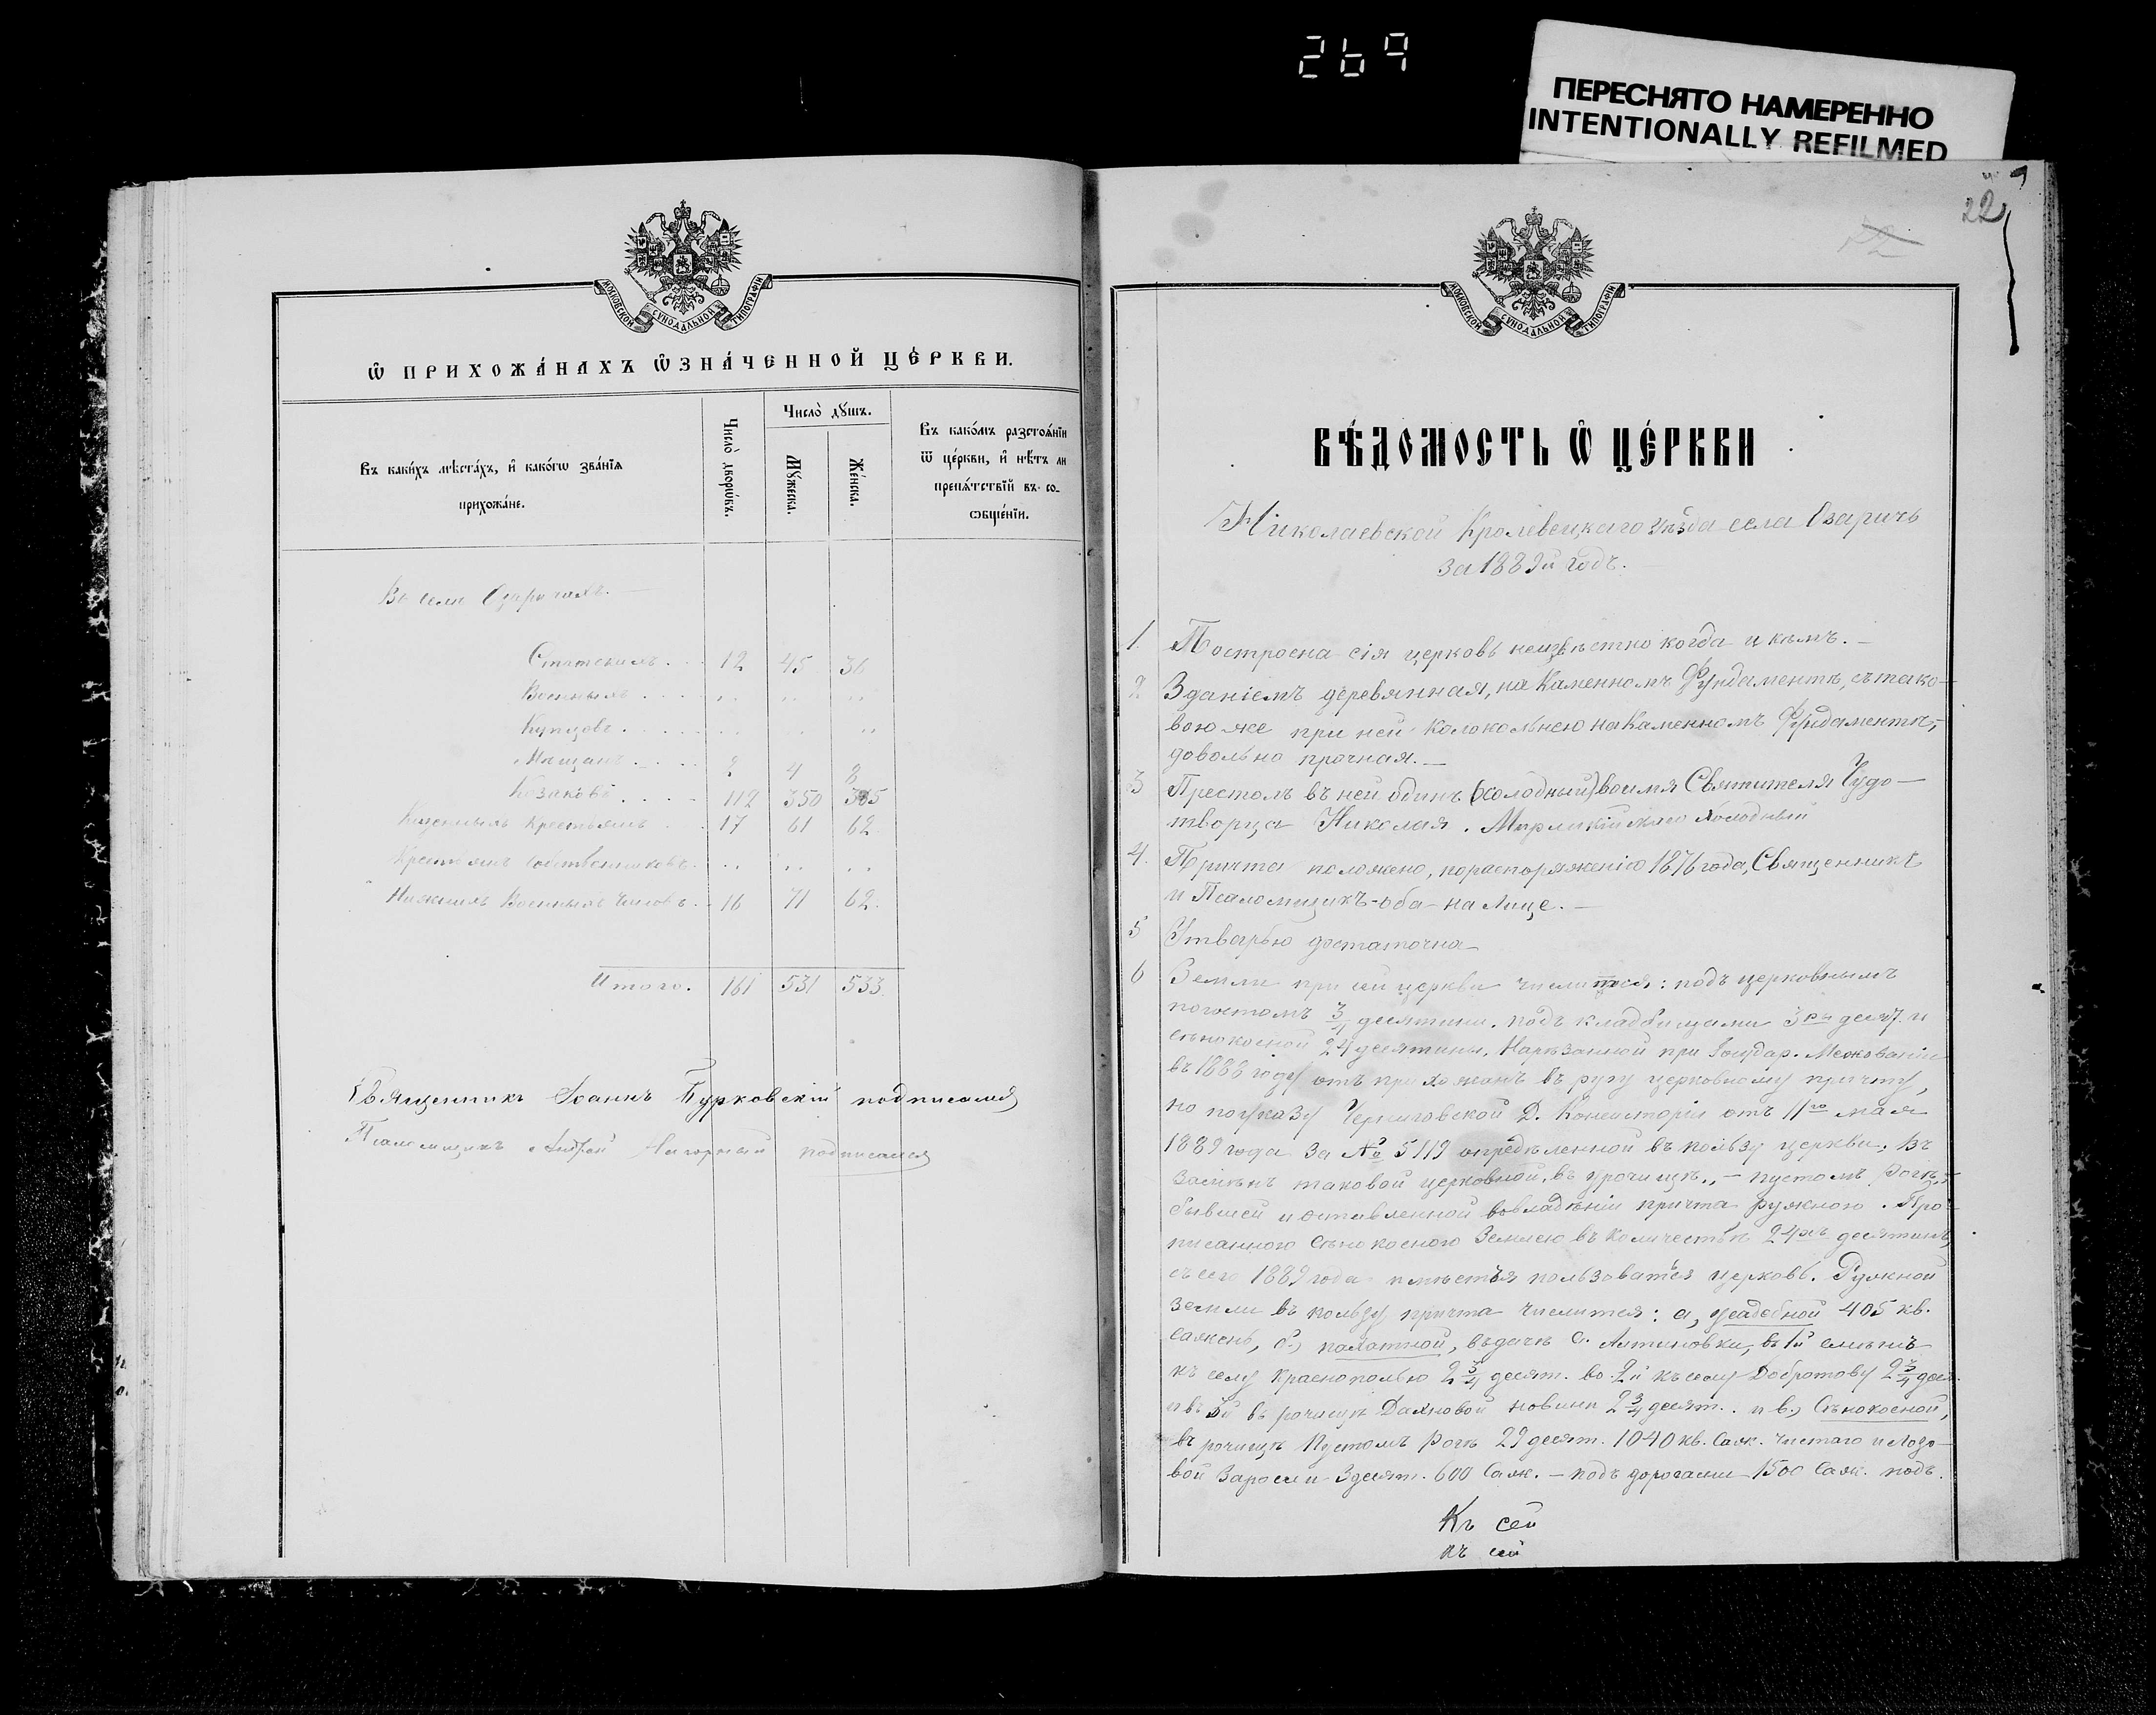 269
ПЕРЕСНЯТО НАМЕРЕННО
INTENTIONALLY REFILMED
МОСКОВСКОЙ СѴНОДАЛЬНОЙ ТИПОГРАФІИ
Ѡ ПРИХОЖА́НАХЪ Ѡ҆ЗНА́ЧЕННОЙ ЦЕ́РКВИ.
Въ каки́хъ мѣста́хъ, и҆ како́гѡ зва́нїѧ
прихожа́не.
Число̀ дворѡ́въ.
Число̀ дꙋ́шъ.
Мꙋ́жеска.
Же́нска.
Въ како́мъ разстоѧ́нїи
ѿ це́ркви, и҆ нѣ́тъ ли
препѧ́тствїй въ со-
ѻбще́нїи.
Въ селѣ Озаричахъ.
Статскихъ. 12 45 36
Военныхъ . . . .
Купцовъ . . . .
Мѣщанъ . . . 2 4 8
Козаковъ . . . . 112 350 365
Казенныхъ Крестьянъ . . 17 61 62
Крестьянъ Собственниковъ. . .
Нижнихъ Военныхъ Чиновъ. 16 71 62.
Итого. 161 531 533.
Священникъ Іоаннъ Бурковскій подписался
Псаломщикъ Андрей Нагорный подписался
22
МОСКОВСКОЙ СѴНОДАЛЬНОЙ ТИПОГРАФІИ
ВѢ́ДОМОСТЬ Ѡ ЦЕ́РКВИ
Николаевской Кролевецкаго уѣзда села Озаричъ
за 1889й годъ.
1. Построена сія церковь неизвѣстно когда и кѣмъ. —
2 Зданіемъ деревянная, на Каменномъ Фундаментѣ, съ тако-
вою же при ней колокольнею на Каменномъ Фундаментѣ,
довольно прочная. —
3 Престолъ въ ней одинъ (холодный) во имя Святителя Чудо-
творца Николая. Холодный
4. Причта положено, по распоряженію 1876 года, Священникъ
и Псаломщикъ - оба на Лице. —
5 Утварью достаточна
6 Земли при сей церкви числится: подъ церковнымъ
погостомъ 3/4 десятины. подъ кладбищами 3хъ десят. и
сѣнокосной 24 десятины, Нарѣзанной при Государ. Межованіи
въ 1888 году отъ прихожанъ въ ругу церковному причту,
но по указу Черниговской Д. Консисторіи отъ 11го мая
1889 года за № 5119 опредѣленной въ пользу церкви; Въ
замѣнъ таковой церковной, въ урочищѣ „ — пустомъ Рогѣ,"
бывшей и оставленной во владѣніи причта ружною. Про-
писанною Сѣнокосною Землею въ Количествѣ 24хъ десятинъ,
съ сего 1889 года пользоваться церковь. Ружной
земли въ пользу причта числится: а, усадебной 405 кв.
сажень, б., пахатной, въ дачѣ с. Алтиновки, въ 1й смѣнѣ
къ селу Краснополью 2 3/4 десят. во 2й къ селу Добротову 2 3/4 дес.
и въ 3й въ рочищѣ новины 2 3/4 десят. и в., Сѣнокосной,
въ рочищѣ Пустомъ Рогѣ 29 десят. 1040 кв. Саж. чистаго и Лозо-
вой Заросли 3 десят. 600 Саж. — подъ дорогами 1500 Саж. подъ
Къ сей
къ сей